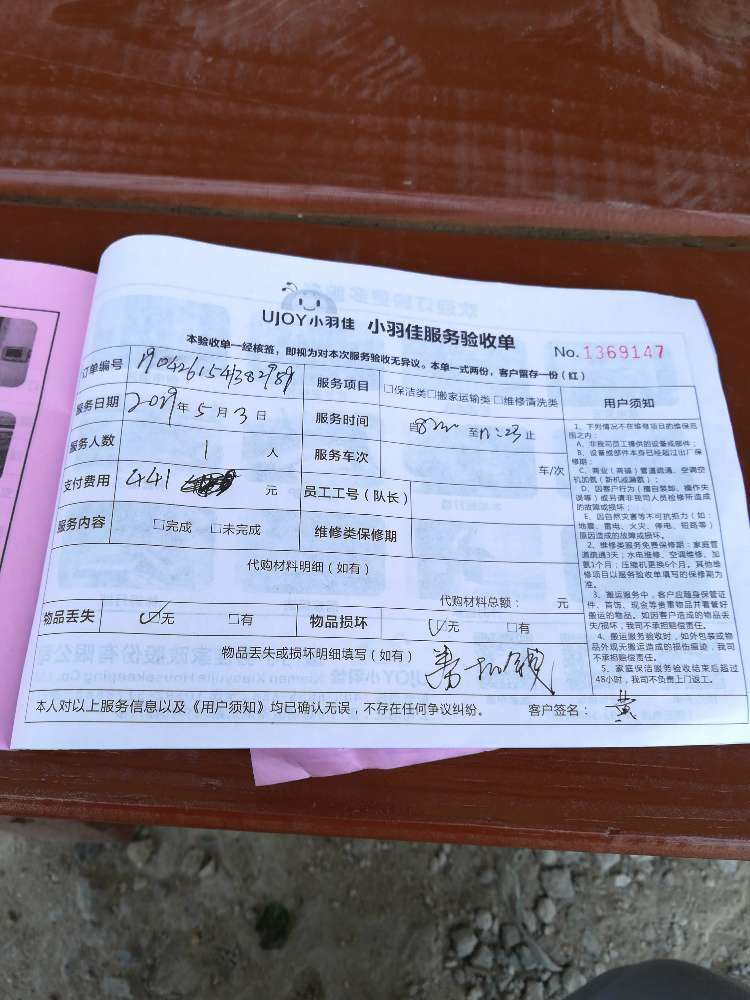 UJOY小羽佳 小羽佳服务验收单
No.1369147
本验收单一经核签，即视为对本次服务验收无异议。本单一式两份，客户留存一份（红）
订单编号 服务项目 □保洁类□搬家运输类□维修清洗类
服务日期 2019年5月3日 服务时间 自 至 止
服务人数 1 人 服务车次 车/次
支付费用 441 元 员工工号（队长）
服务内容 □完成 □未完成 维修类保修期
代购材料明细（如有）
代购材料总额： 元
物品丢失 ☑无 □有 物品损坏 ☑无 □有
物品丢失或损坏明细填写（如有）
本人对以上服务信息以及《用户须知》均已确认无误，不存在任何争议纠纷。 客户签名： 黄
用户须知
1、下列情况不在维修项目的维保范
围之内：
A、非我司员工提供的设备或部件；
B、设备或部件本身已经超过出厂保
修期；
C、商业（商铺）管道疏通、空调空
机加氨（新机或漏氨）；
D、因客户行为（擅自装卸、操作失
误等）或另请非我司人员检修所造成
的故障或损坏；
E、因自然灾害等不可抗拒力（如：
地震、雷电、火灾、停电、短路等）
原因造成的故障或损坏。
2、维修类服务免费保修期：家庭管
道疏通3天；水电维修、空调维修、加
氨1个月；压缩机更换6个月。其他维
修项目以服务验收单填写的保修期为
准。
3、搬运服务中，客户应随身保管证
件、首饰、现金等贵重物品并看管好
搬运的物品。如因客户造成的物品丢
失/损坏，我司不承担赔偿责任。
4、搬运服务验收时，如外包装或物
品外观无搬运造成的损伤痕迹，我司
不承担赔偿责任。
5、家庭保洁服务验收结束后超过
48小时，我司不负责上门返工。